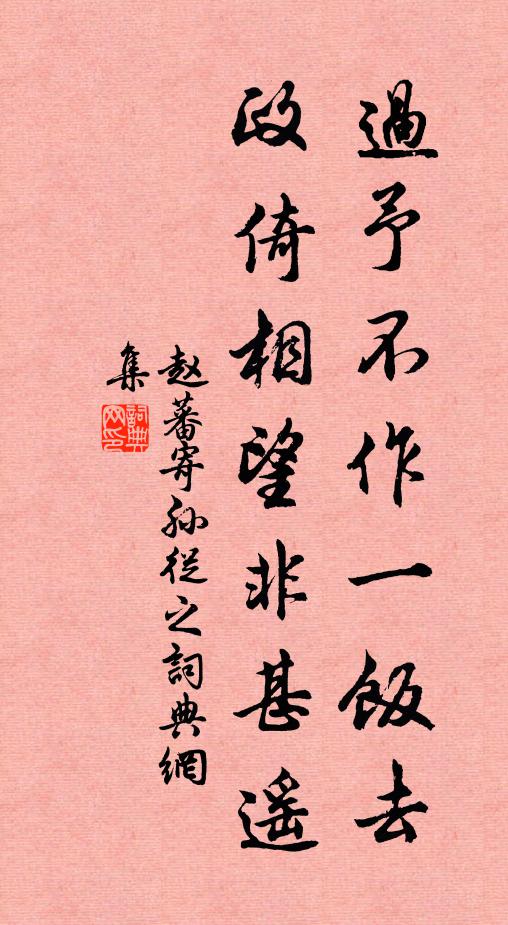 過予不作一飯去
政倚相望非甚遥
赵蕃寄孙從之詞典網
集
詞典网印